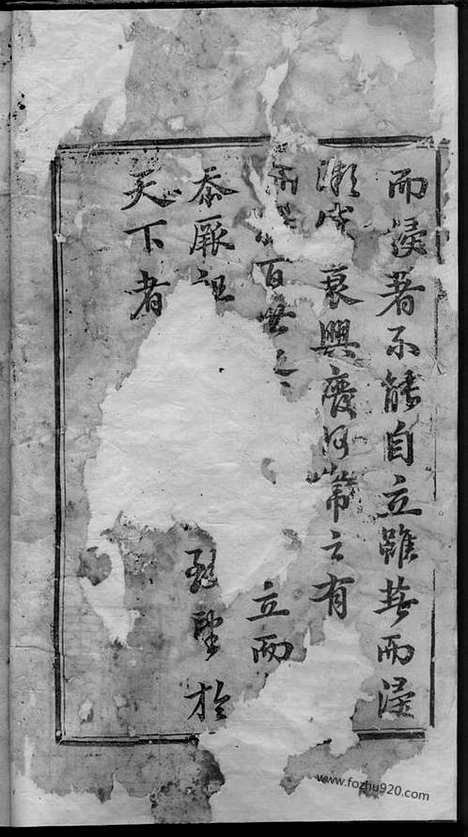 而浸著不能自立雖蓍而浸
微 衰興廢何常之有
百世之 立而
忝厥祖 致望於
天下者
www.fozhu920.com